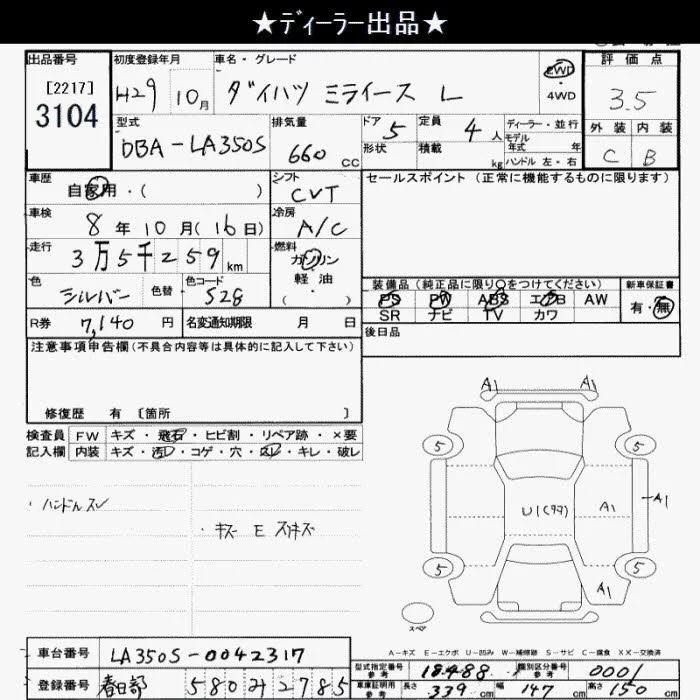 ★ディーラー出品★
出品番号 初度登録年月 車名・グレード 評価点
[2217]
3104
H29 10月 ダイハツ ミライース L 2WD・4WD 3.5
型式 排気量 ドア 定員 ディーラー・並行 外装 内装
DBA-LA350S 660 cc 5 4人 モデル年式 年 C B
形状 積載 kg ハンドル 左・右
車歴 自家用・( ) シフト CVT セールスポイント (正常に機能するものに限ります)
車検 8年10月(16日) 冷房 A/C
走行 3万5千259km 燃料 ガソリン・軽油・( )
色 シルバー 色替 色コード S28
装備品 (純正品に限り○をつけてください) 新車保証書
PS PW ABS エアB AW 有・無
SR ナビ TV カワ
R券 7,140円 名変通知期限 月 日 後日品
注意事項申告欄(不具合内容等は具体的に記入して下さい)
修復歴 有 〔箇所 〕
検査員 FW キズ・飛石・ヒビ割・リペア跡・×要
記入欄 内装 キズ・汚レ・コゲ・穴・スレ・キレ・破レ
・ハンドルスレ
・キズ E スリキズ
A1 A1
5 5
U1(タタ) A1 A1
5 A1 5
スペア
A-キズ E-エクボ U-凹み W-補修跡 S-サビ C-腐食 XX-交換済
車台番号 LA350S-0042317
登録番号 春日部 580 み 2785
型式指定番号 参考 18488 類別区分番号 参考 0001
車庫証明用 参考 長さ 339cm 幅 147cm 高さ 150cm